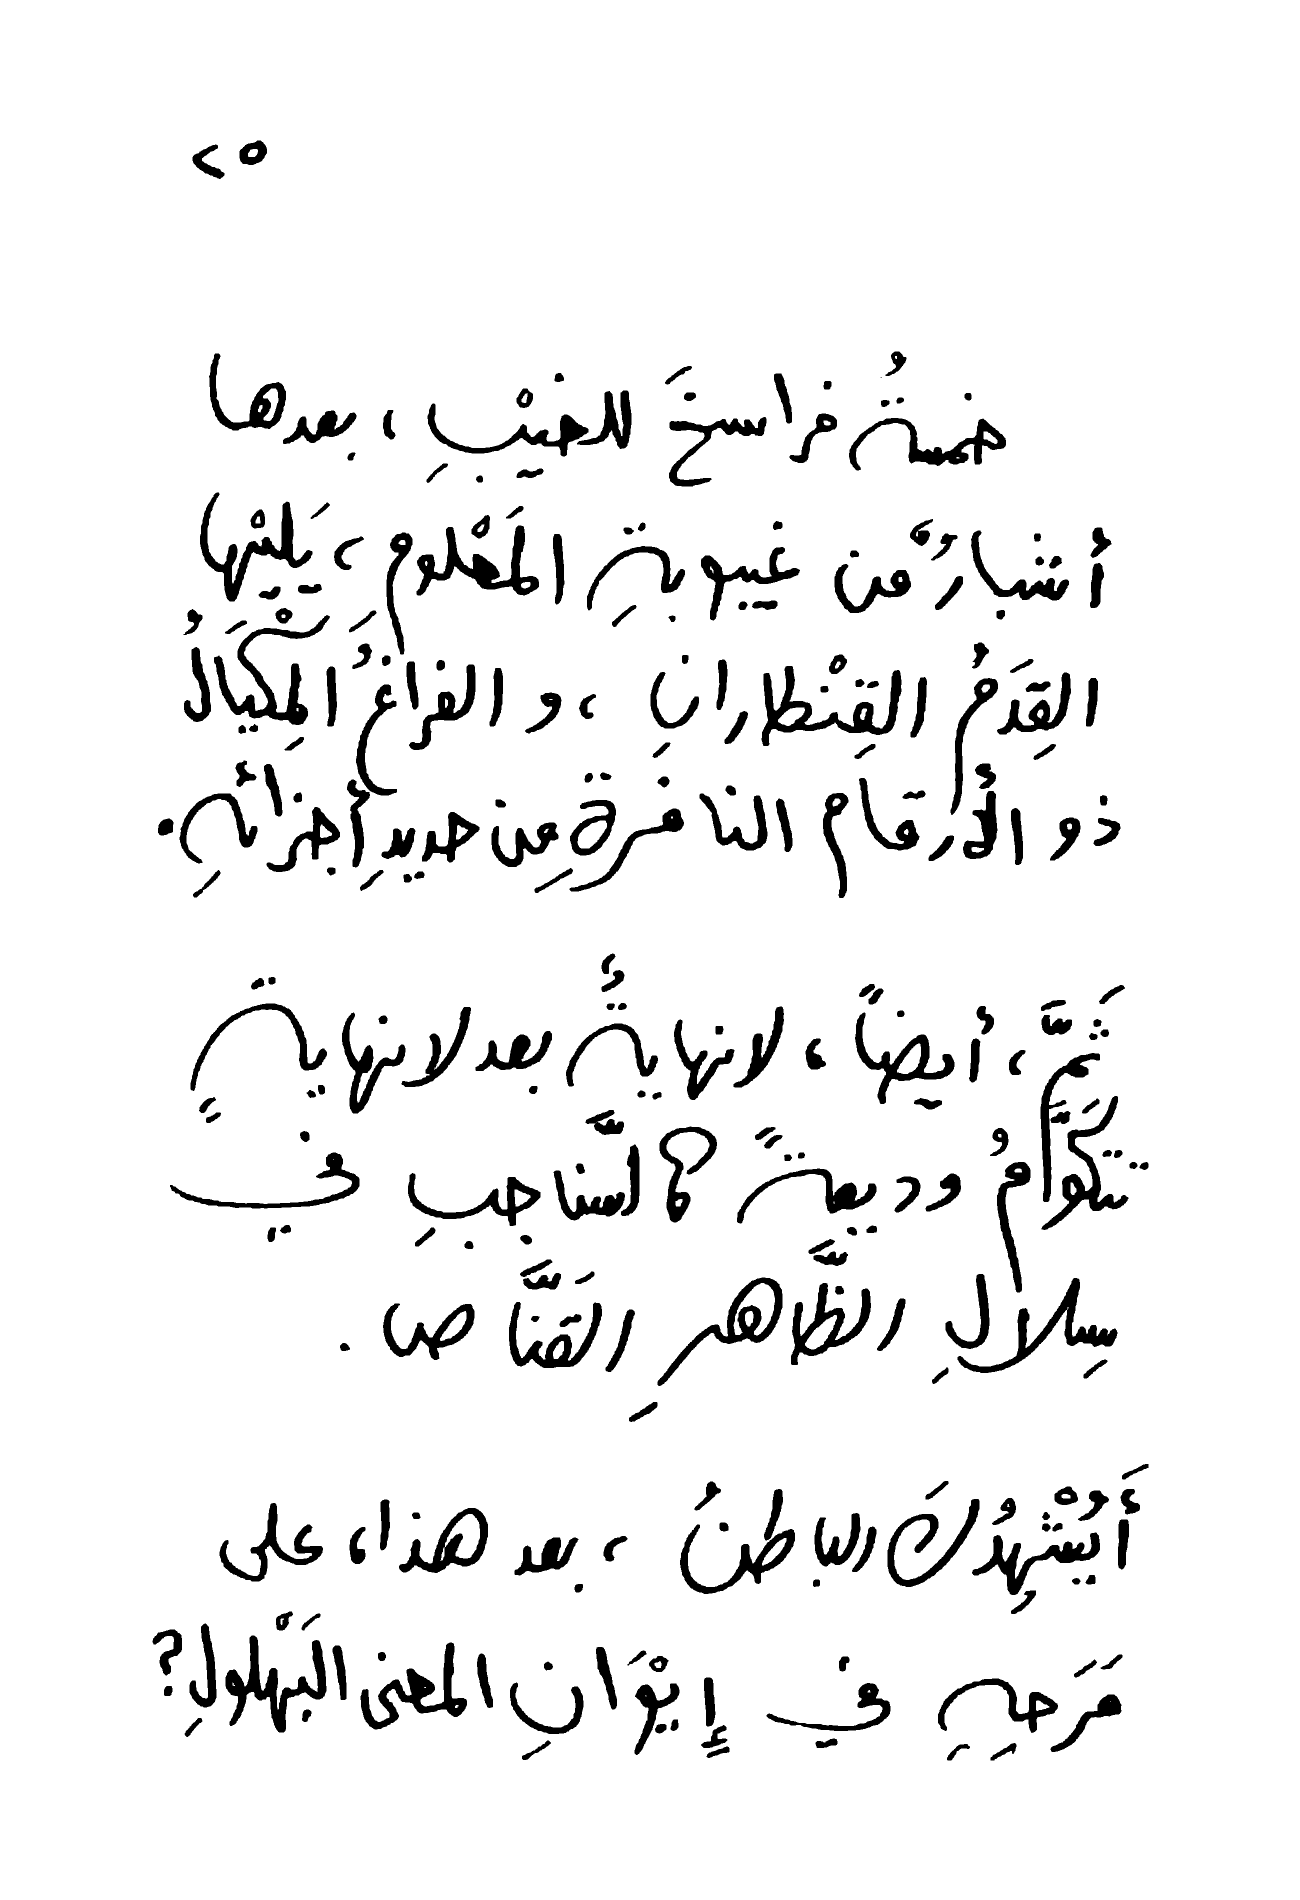 ٢٥
خمسةُ فراسخَ للغيْبِ ، بعدها
أشبارٌ من غيبوبةِ المَعْلومِ ، يَليْها
القِدَمُ القِنْطارانِ ، و الفراغُ المِكْيَالُ
ذو الأرقام النافرةِ من حديدِ أجزائهِ .
ثمَّ ، أيضاً ، لانهايةٌ بعد لانهايةٍ
تتكوَّمُ وديعةً كالسَّناجبِ في
سِلالِ الظَّاهرِ القَنَّاص .
أَيُشْهِدُكَ الباطنُ ، بعد هذا ، على
مَرَحِهِ في إيْوَانِ المعنى البَهْلولِ ؟